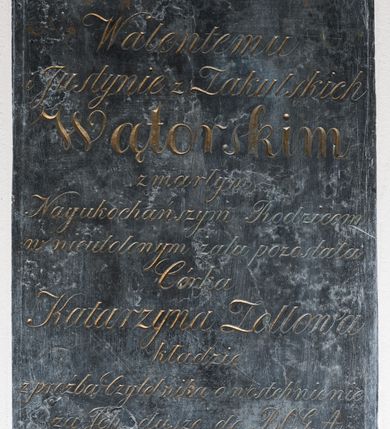 Walentemu
i Justynie z Zakulskich
Wątorskim
zmarłym
Nayukochańszym Rodzicom
w nieutolonym zalu pozostała
Córka
Katarzyna Zollowa
kładzie
z prozbą Czytelnika o westchnienie
za Ich dusze do P.